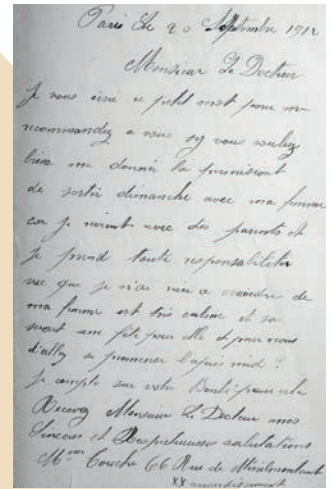 Paris Le 20 Septembre 1912
Monsieur Le Docteur
Je vous écrie ce petit mot pour me
recommandez a vous sy vous voulez
bien me donné la permission
de sortir dimanche avec ma femme
car je avec des parents et
je prend toute responsabiliter
vue que je n'ai rien a craindre de
ma femme est très calme et sa
serait une fête pour elle et pour nous
d'allez se promener l'après midi
Je compte sur votre Bonté pour cela
Recevez Monsieur Le Docteur mes
Sincères et Respectueuses salutations
Couche 66 Rue de Ménilmontant
XX arrondissement